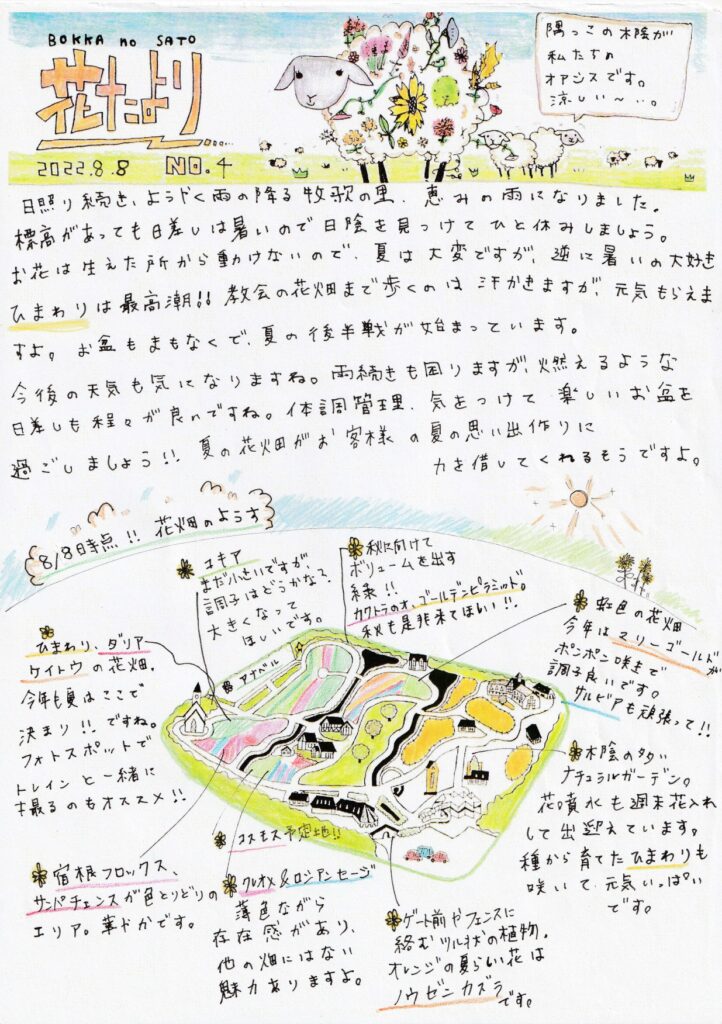 BOKKA no SATO
花たより
2022.8.8 NO.4
隅っこの木陰が
私たちの
オアシスです。
涼しい〜、。
日照り続き、ようやく雨の降る牧歌の里、恵みの雨になりました。
標高があっても日差しは暑いので日陰を見つけてひと休みしましょう。
お花は生えた所から動けないので、夏は大変ですが、逆に暑いの大好き
ひまわりは最高潮!! 教会の花畑まで歩くのは汗かきますが、元気もらえま
すよ。お盆もまもなくで、夏の後半戦が始まっています。
今後の天気も気になりますね。雨続きも困りますが、燃えるような
日差しも程々が良いですね。体調管理、気をつけて楽しいお盆を
過ごしましょう!! 夏の花畑がお客様の夏の思い出作りに
力を借してくれるそうですよ。
8/8時点!! 花畑のようす
コキア
まだ小さいですが
調子はどうかな?
大きくなって
ほしいです。
秋に向けて
ボリュームを出す
緑!!
カクトラのオ、ゴールデンピラミッド。
秋も是非来てほしい!!
虹色の花畑
今年はマリーゴールドが
ポンポン咲きで
調子良いです。
サルビアも頑張って!!
ひまわり、ダリア
ケイトウの花畑。
今年も夏はここで
決まり!! ですね。
フォトスポットで
トレインと一緒に
撮るのもオススメ!!
アナベル
木陰の多い
ナチュラルガーデン。
花噴水も週末花入れ
して出迎えています。
種から育てたひまわりも
咲いて、元気いっぱい
です。
コスモス予定地!!
宿根フロックス、
サンパチェンスが色とりどりの
エリア。華やかです。
クレオメ&ロシアンセージ
薄色ながら
存在感があり、
他の畑にはない
魅力ありますよ。
ゲート前やフェンスに
絡むツル状の植物。
オレンジの夏らしい花は
ノウゼンカズラです。